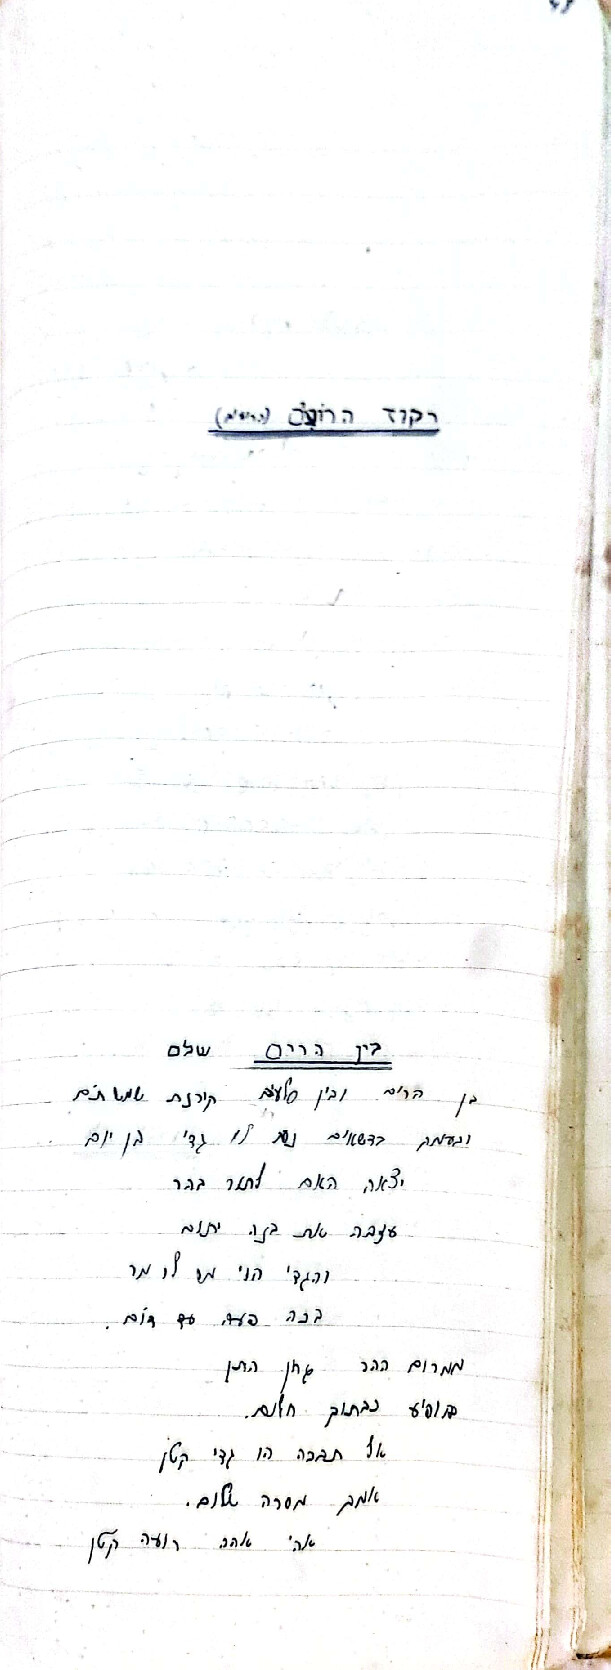 רקוד הרועים
בין הרים שלם
בן הרים ובין סלעים קירנת שמש חם
ובעמק בדשאים נח לו גדי בן יום
יצאה האם לתור בהר
עזבה את בנה יתום
והגדי הוי מר לו מר
בכה פעה עד דום.
ממרום ההר התן
מופיע כבתוך חלום.
אל תבכה הו גדי קטן
אמך מסרה שלום.
רועה קטן